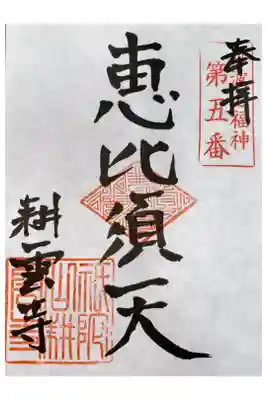 奉拝
福神
第五番
恵比須天
耕雲寺